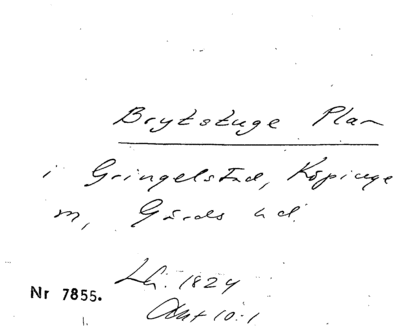 Brytstuge Plan
i Gringelstad, Köpinge
m, Gärds hd.
Lh. 1824
Nr 7855.
Akt 10:1